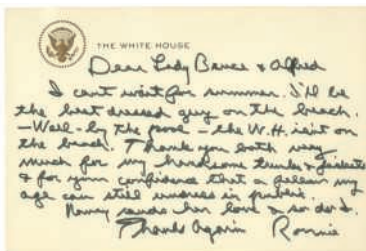 THE WHITE HOUSE
Dear Lady Bruce & Alfred
I can't wait for summer. I'll be
the best dressed guy on the beach.
—Well—by the pool—the W.H. isn't on
the beach. Thank you both very
much for my handsome trunks & jackets
& for your confidence that a fellow my
age can still undress in public.
Nancy sends her love & so do I.
Thanks Again Ronnie